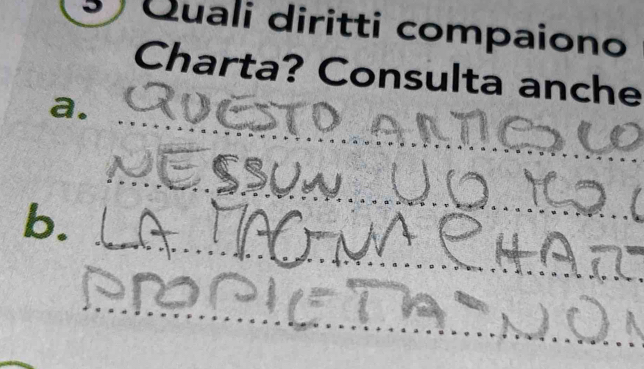 5 Quali diritti compaiono
Charta? Consulta anche
a. QUESTO ARTICOLO
NESSUN UOMO
b. LA MAGNA CHART
PROPIETÀ NON